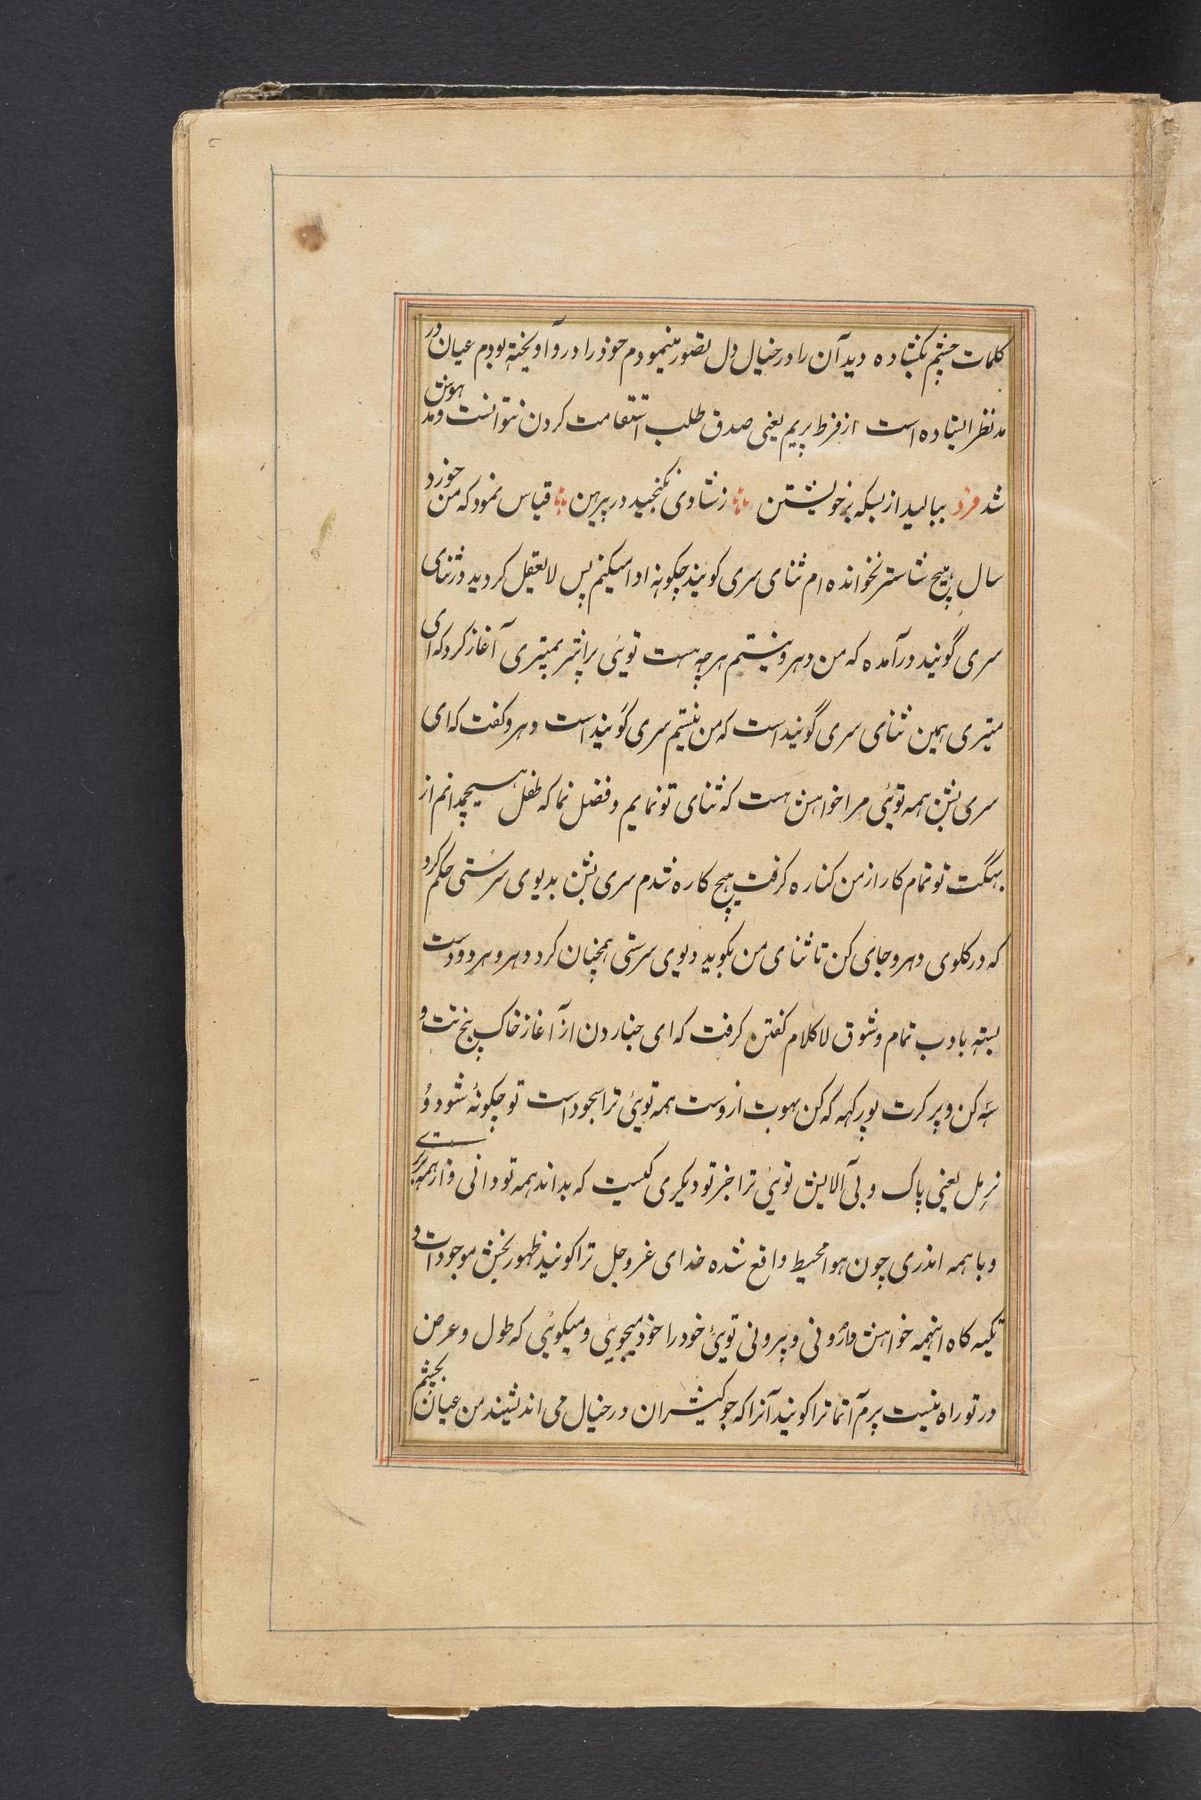 کلمات چشم بکشاده دید آن را در خیال دل تصور مینمودم خود را درو آویخته بودم عیان در
مد نظر ایستاده است از فرط پریم یعنی صدق طلب استقامت کردن نتوانست و مد هوش
شد فرد ببالید از بسکه بر خویشتن زشادی نکنجید در پیرهن قیاس نمود که من خورد
سال هیچ شاستر نخوانده ام ثنای سری کوبند چکونه ادا میکنم پس لایعقل کردید و ثنای
سری گوبند درآمده که من دهرو نیستم هرچه هست توئی برانتر میتری آغاز کرد که ای
میتری همین ثنای سری گوبند است که من نیستم سری گوبند است دهرو کفت که ای
سری بشن همه توئی مرا خواهش هست که ثنای تو نمایم و فضل نما که طفل هیچمدانم از
بهگت تو تمام کار از من کناره کرفت هیچ کاره شدم سری بشن بدیوی سرستی حکم کرد
که در کلوی دهرو جای کن تا ثنای من بکوید دیوی سرستی همچنان کرد دهرو هر دو دست
بسته بادب تمام و شوق لاکلام کفتن کرفت که ای جناردن از آغاز خاک پنج تت و
سه کن و پرکرت پورکهه که کن بهوت ازوست همه توئی ترا سجود است تو چکونه شود و
نرمل یعنی پاک و بی آلایش توئی ترا جز تو دیکری کیست که بداند همه تو دانی و از همه برتری
و با همه اندری چون هوا محیط واقع شده خدای عز و جل ترا کویند ظهور بخش موجودات و
تکیه کاه اینهمه خواهش درونی و بیرونی توئی خود را خود میجوئی و میکوئی که طول و عرض
در تو راه نیست پرم آتما ترا کویند آنرا که جوکیشران در خیال می اندیشند من عیان بچشم